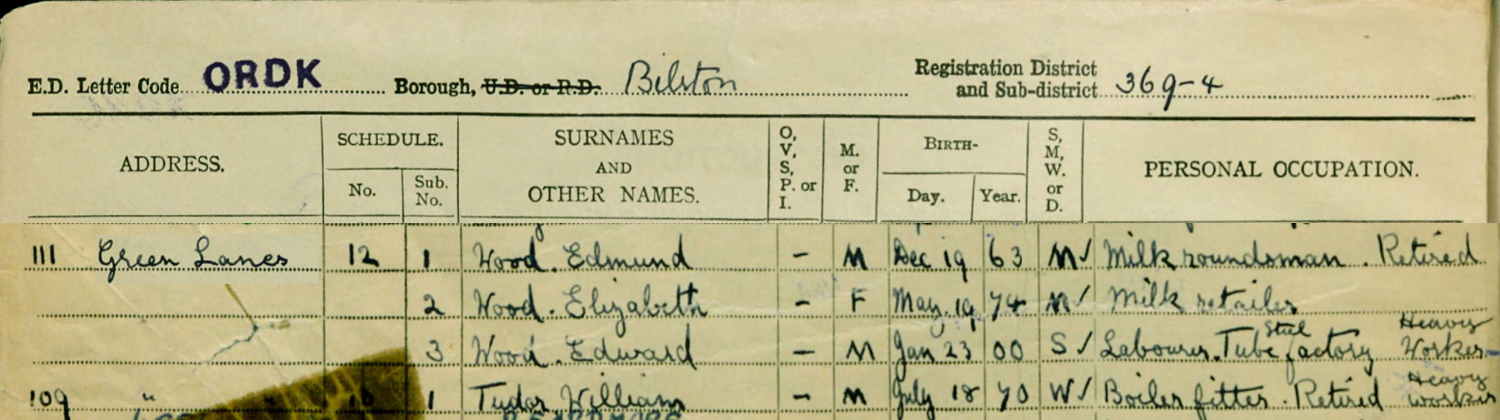 E.D. Letter Code ORDK Borough, U.D. or R.D. Bilston Registration District and Sub-district 369-4
ADDRESS. SCHEDULE. No. Sub. No. SURNAMES AND OTHER NAMES. O, V, S, P. or I. M. or F. BIRTH- Day. Year. S, M, W. or D. PERSONAL OCCUPATION.
111 Green Lanes 12 1 Wood. Edmund – M Dec 19 63 M✓ Milk roundsman. Retired
2 Wood. Elizabeth – F May. 19 74 M✓ Milk retailer
3 Wood. Edward – M Jan 23 00 S✓ Labourer. Tube Steel factory Heavy Worker
109 " 1 Tudor William – M July 18 70 W✓ Boiler fitter. Retired Heavy Worker